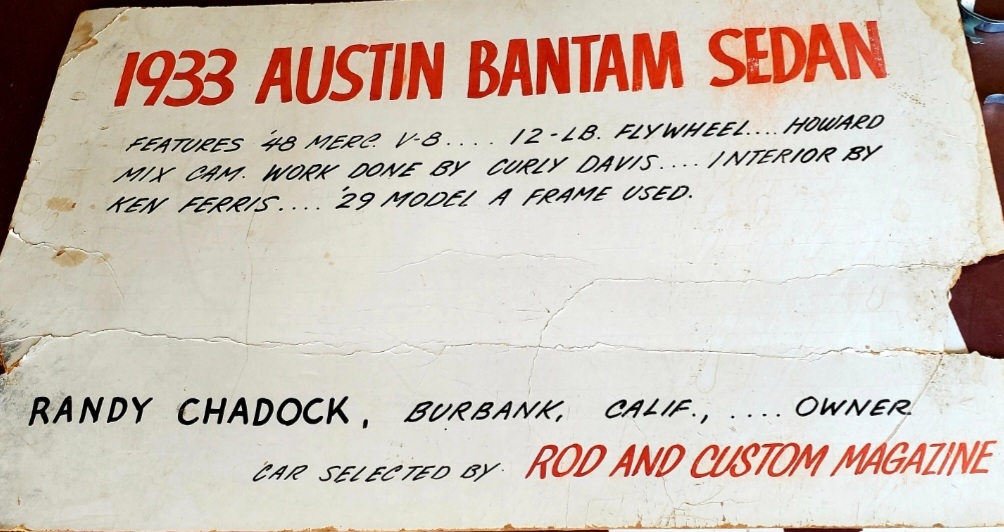 1933 AUSTIN BANTAM SEDAN
FEATURES '48 MERC. V-8.... 12-LB. FLYWHEEL.... HOWARD
MIX CAM. WORK DONE BY CURLY DAVIS.... INTERIOR BY
KEN FERRIS.... '29 MODEL A FRAME USED.
RANDY CHADOCK, BURBANK, CALIF., .... OWNER
CAR SELECTED BY ROD AND CUSTOM MAGAZINE